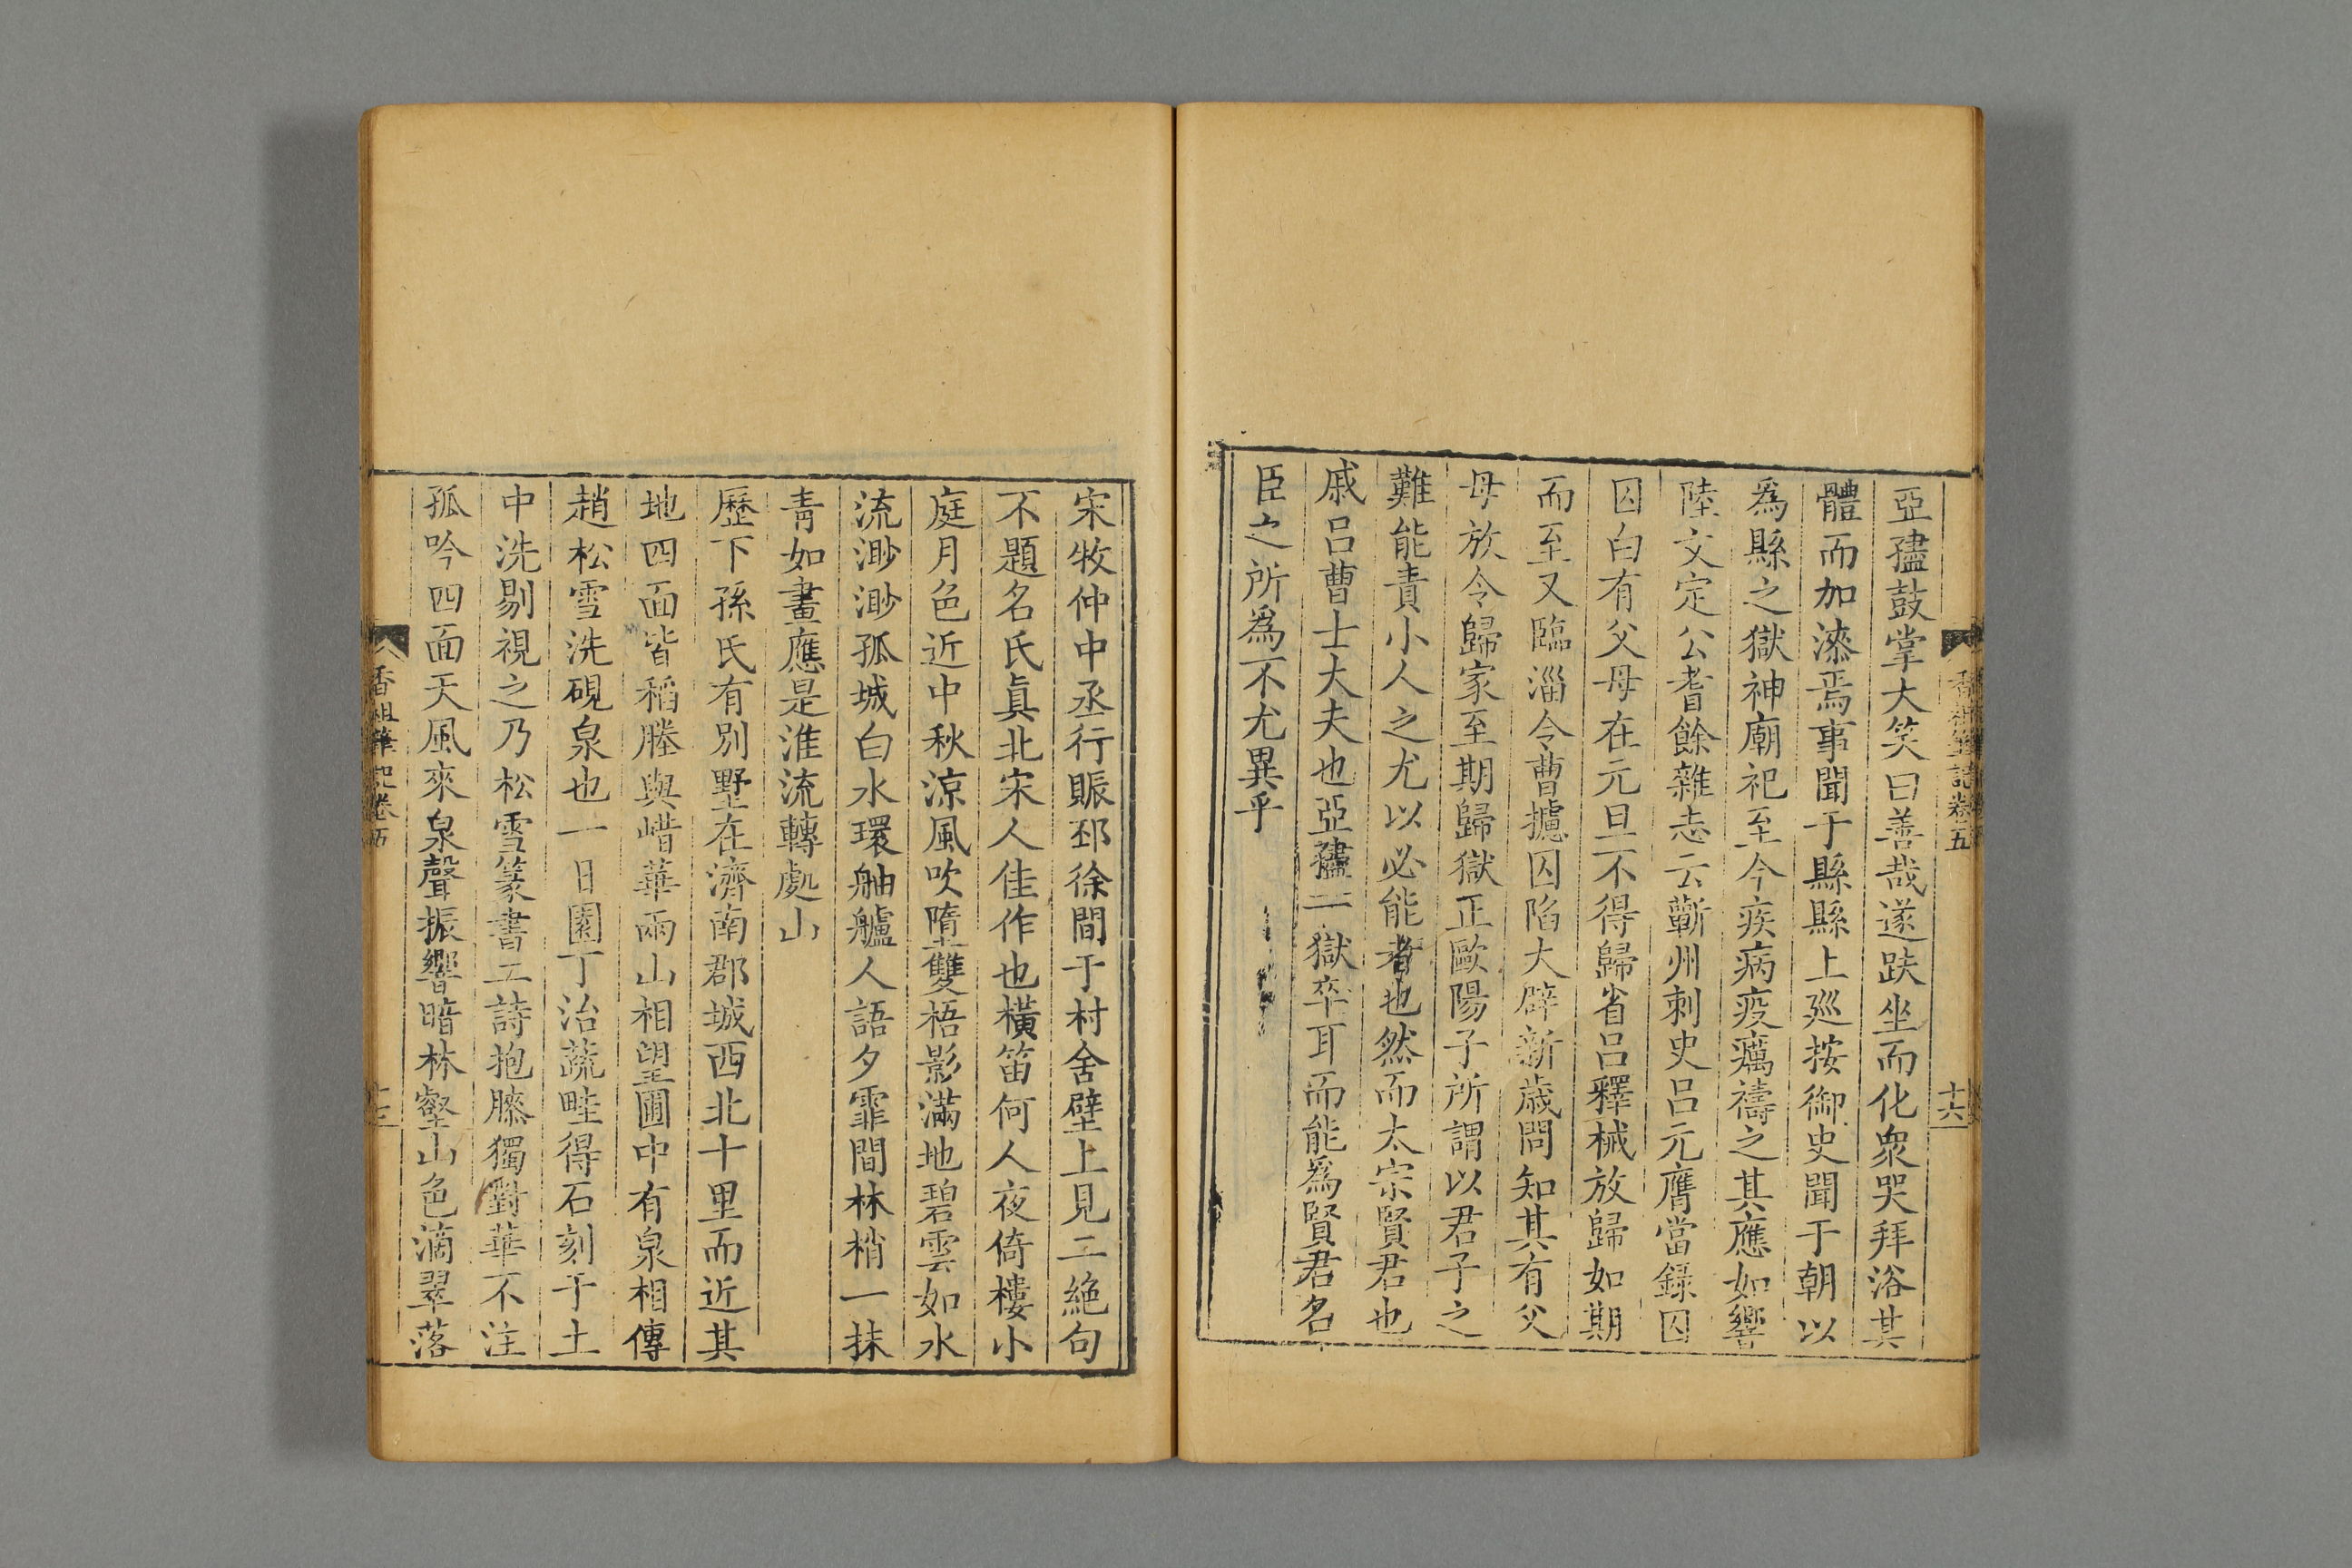 亞孺鼓掌大笑曰善哉遂趺坐而化衆哭拜浴其
體而加漆焉事聞于縣縣上廵按御史聞于朝以
爲縣之獄神廟祀至今疾病疫癘禱之其應如響
陸文定公耆餘雜志云蘄州刺史呂元膺當錄囚
囚白有父母在元旦不得歸省呂釋械放歸如期
而至又臨淄令曹攄囚陷大辟新歲問知其有父
母放令歸家至期歸獄正歐陽子所謂以君子之
難能責小人之尤以必能者也然而太宗賢君也
戚呂曹士大夫也亞孺一獄卒耳而能爲賢君名
臣之所爲不尤異乎
香祖筆記卷五
十六
宋牧仲中丞行賑邳徐間于村舍壁上見二絶句
不題名氏眞北宋人佳作也橫笛何人夜倚樓小
庭月色近中秋涼風吹墮雙梧影滿地碧雲如水
流渺渺孤城白水環舳艫人語夕霏間林梢一抹
靑如畫應是淮流轉處山
歷下孫氏有別墅在濟南郡城西北十里而近其
地四面皆稻塍與崵華兩山相望圃中有泉相傳
趙松雪洗硯泉也一日園丁治蔬畦得石刻于土
中洗剔視之乃松雪篆書二詩抱膝獨對華不注
孤吟四面天風來泉聲振響暗林壑山色滴翠落
香祖筆記卷五